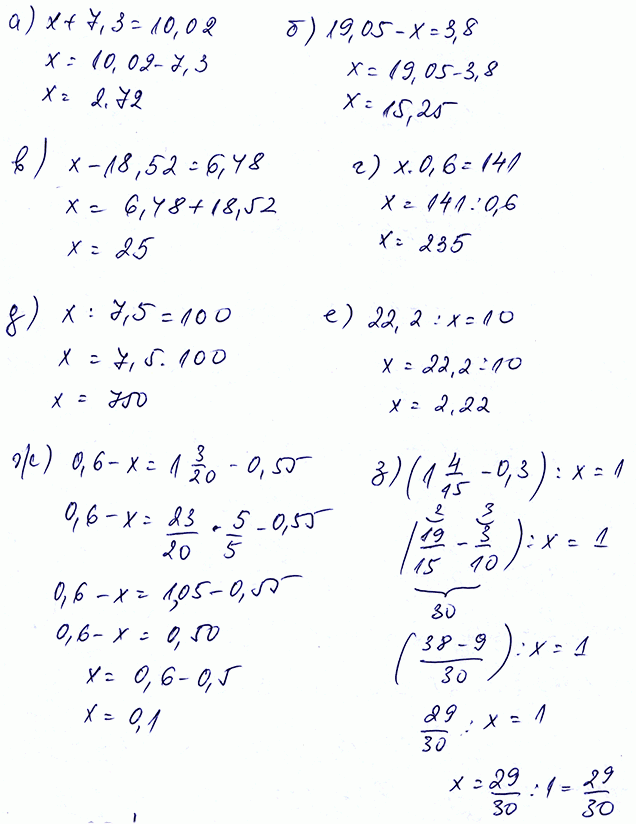 а) x + 7,3 = 10,02
x = 10,02 - 7,3
x = 2.72
б) 19,05 - x = 3,8
x = 19,05 - 3,8
x = 15,25
в) x - 18,52 = 6,48
x = 6,48 + 18,52
x = 25
г) x · 0,6 = 141
x = 141 : 0,6
x = 235
д) x : 7,5 = 100
x = 7,5 · 100
x = 750
е) 22,2 : x = 10
x = 22,2 : 10
x = 2,22
ж) 0,6 - x = 1 3/20 - 0,55
0,6 - x = 23/20 · 5/5 - 0,55
0,6 - x = 1,05 - 0,55
0,6 - x = 0,50
x = 0,6 - 0,5
x = 0,1
з) (1 4/15 - 0,3) : x = 1
2 3
(19/15 - 3/10) : x = 1
30
(38 - 9/30) : x = 1
29/30 : x = 1
x = 29/30 : 1 = 29/30